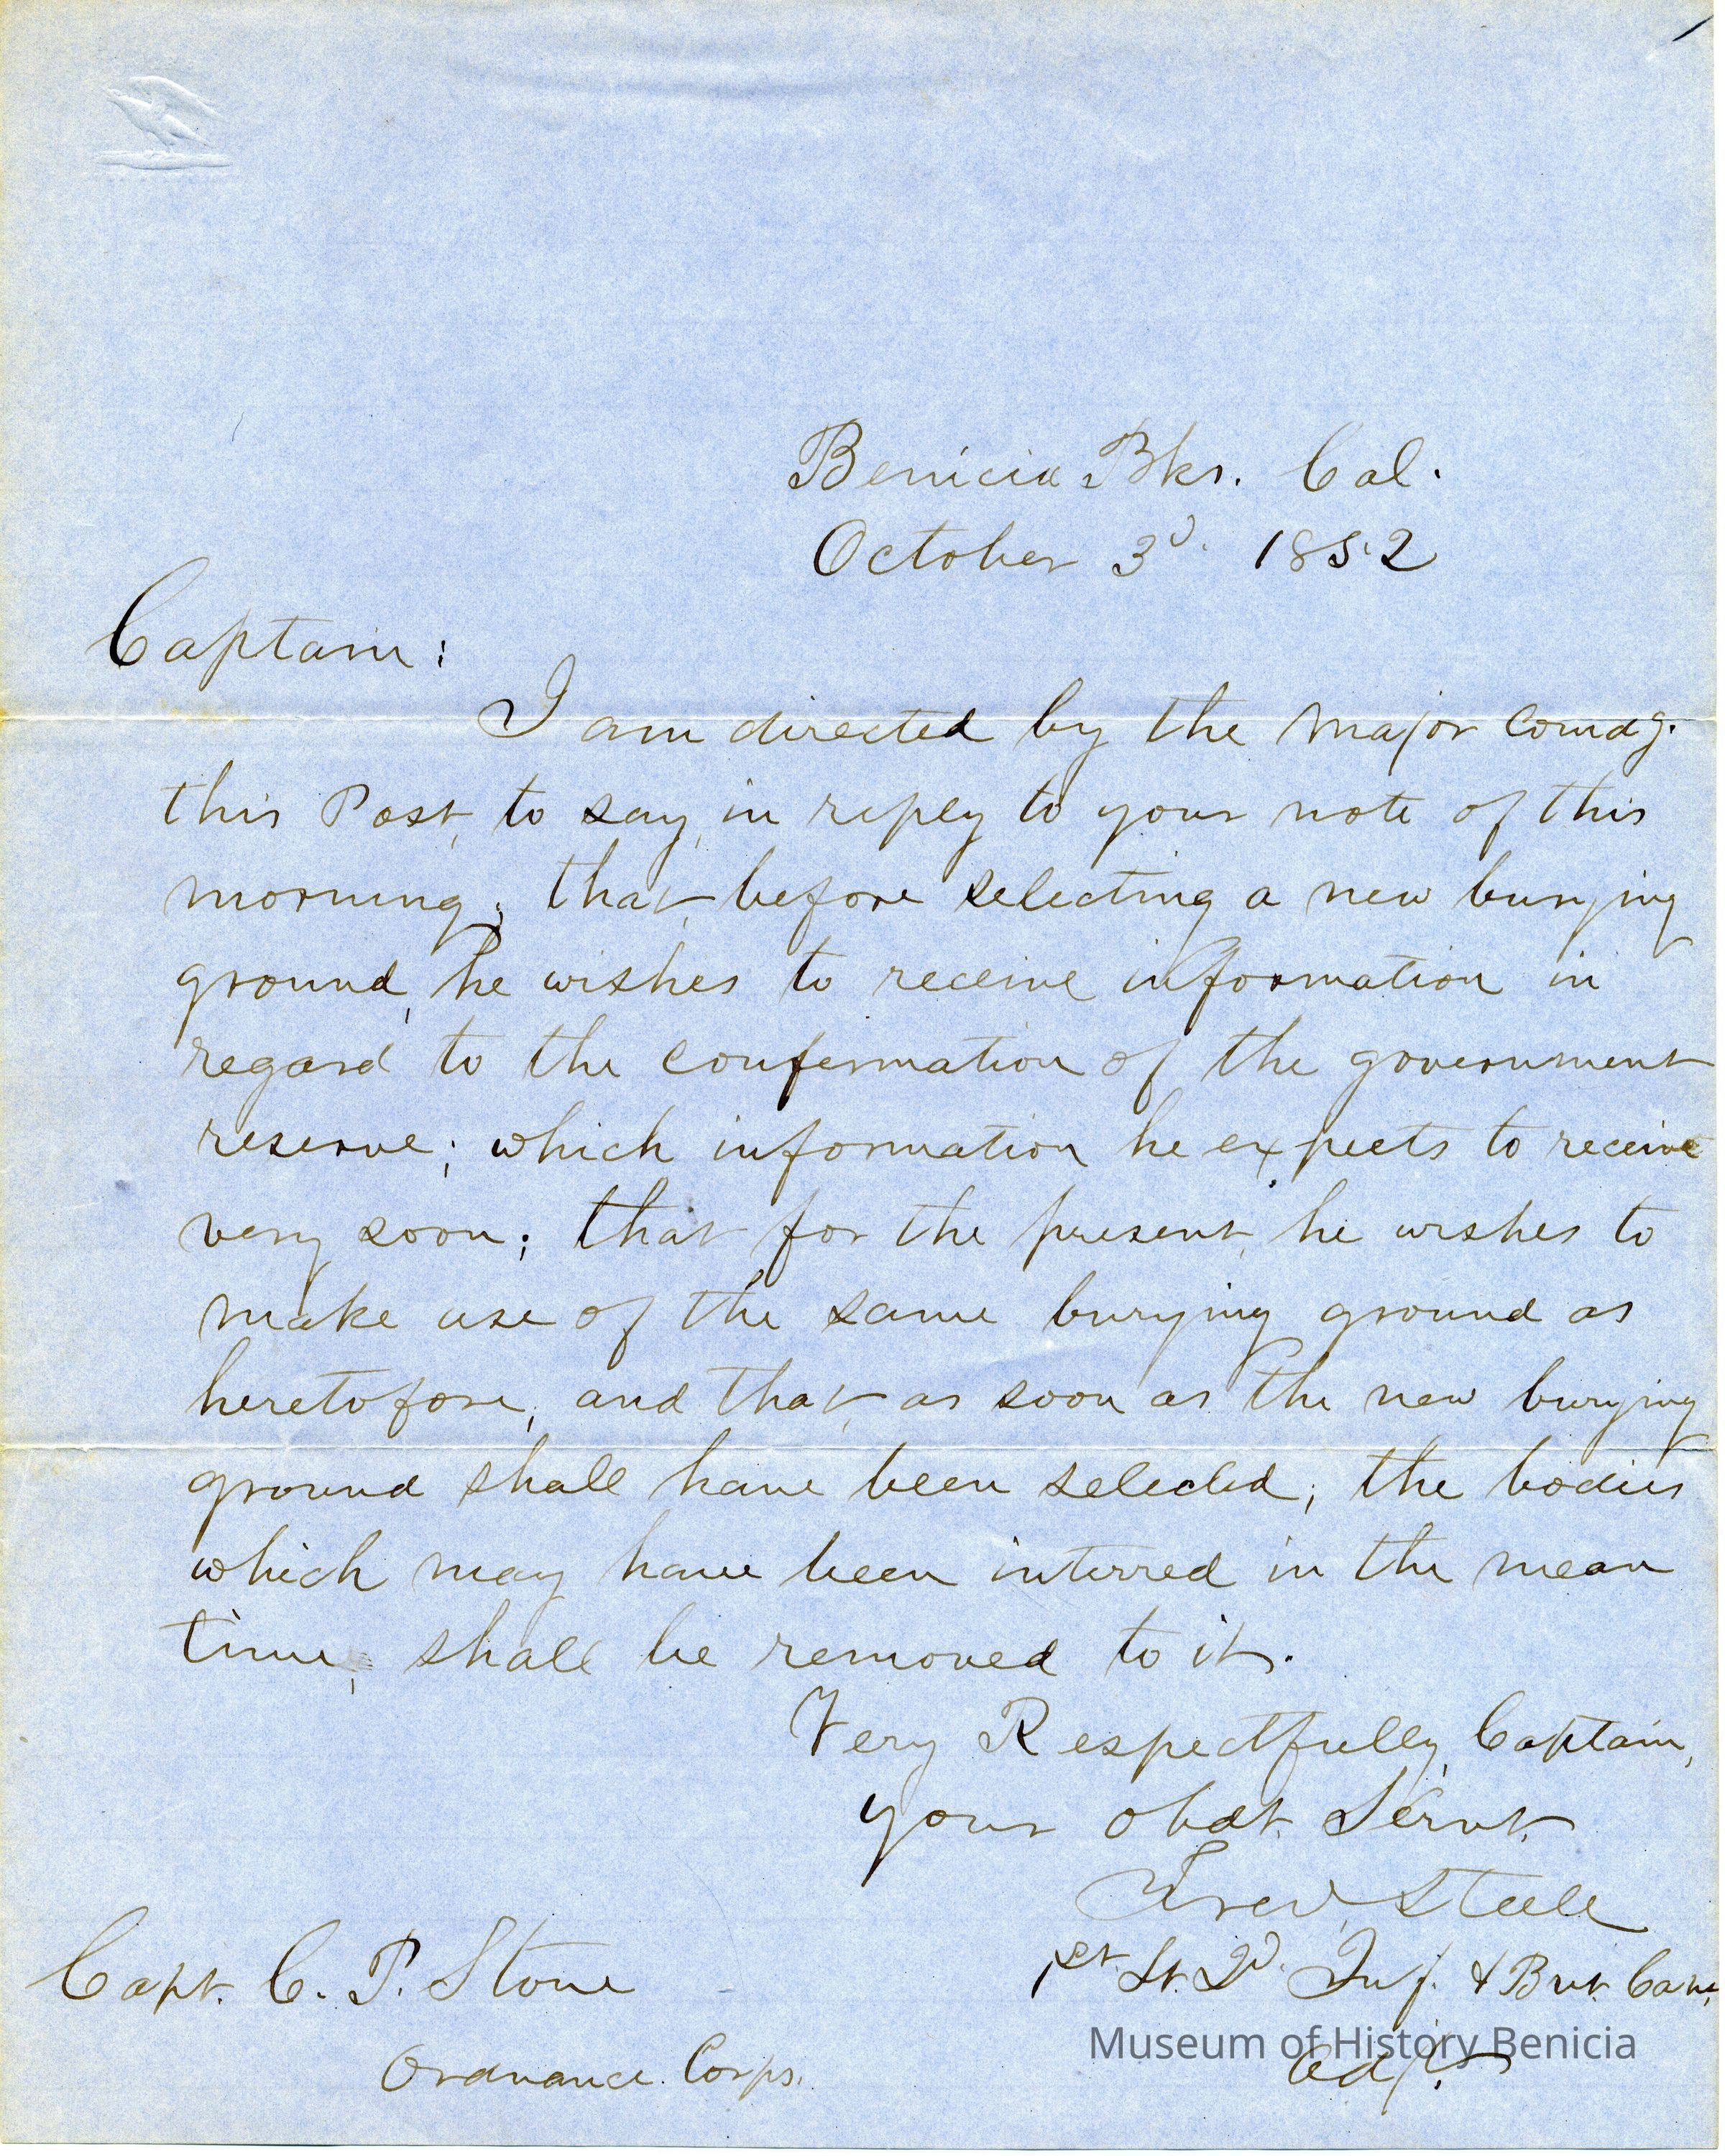 Benicia Bks. Cal.
October 3d. 1852
Captain:
I am directed by the Major Comdg.
this Post, to say, in reply to your note of this
morning, that, before selecting a new burying
ground, he wishes to receive information in
regard to the confermation of the government
reserve; which information he expects to receive
very soon; that for the present, he wishes to
make use of the same burying ground as
heretofore, and that, as soon as the new burying
ground shall have been selected, the bodies
which may have been interred in the mean
time, shall be removed to it.
Very Respectfully, Captain,
your obdt. Servt.
Fred. Steele
1st Lt. 2d. Inf. & Brvt. Capt.
Adjt.
Capt. C. P. Stone
Ordnance Corps.
Museum of History Benicia